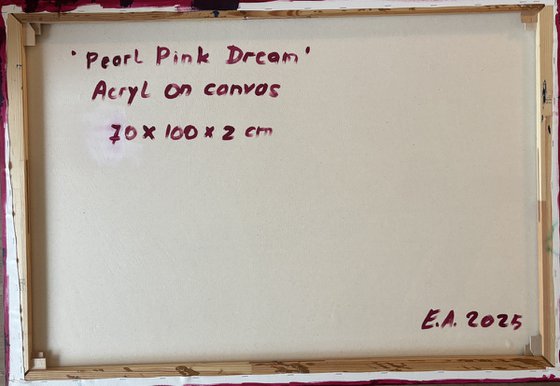 'Pearl Pink Dream'
Acryl on canvas
70 x 100 x 2 cm
E.A. 2025